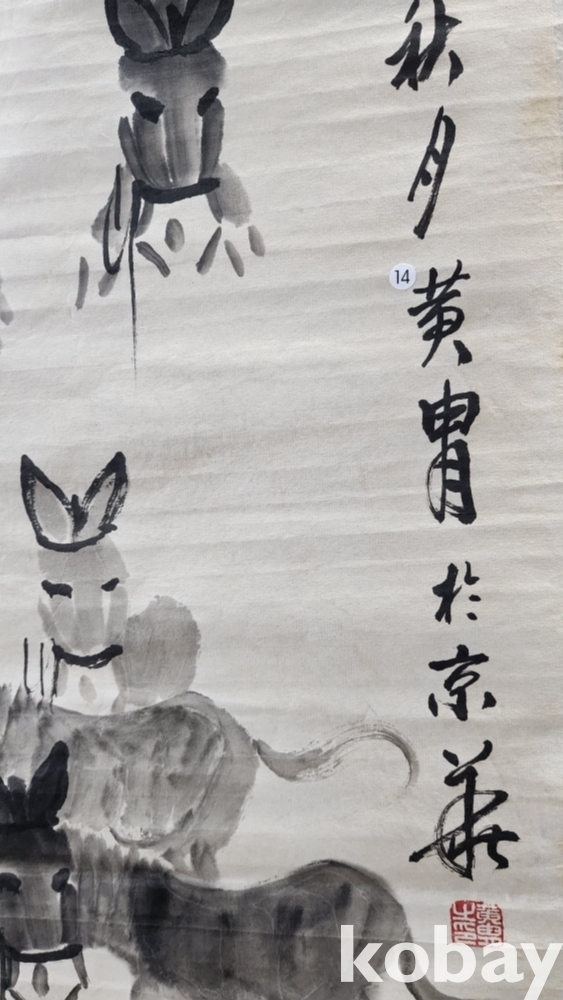 秋月黄胄於京華
14
黄胄之印
kobay